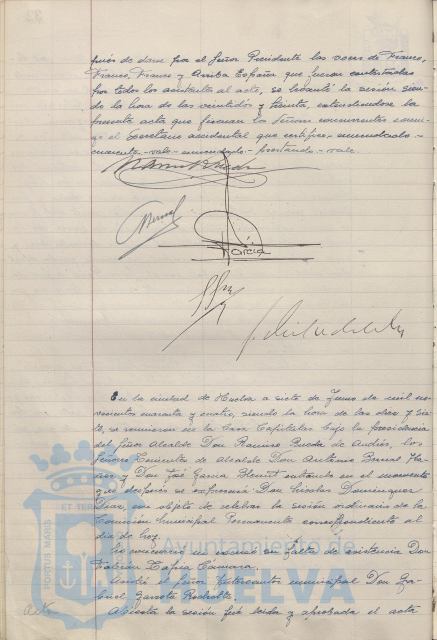 pués de darse por el Señor Presidente las voces de Franco,
Franco, Franco y Arriba España que fueron contestadas
por todos los asistentes al acto, se levantó la sesión sien-
do la hora de las veintidós y treinta, extendiendose la
presente acta que firman los Señores concurrentes conmi-
go el Secretario accidental que certifico. enmendado.-
cuarenta - vale - enmendado - prestando - vale.
García
En la ciudad de Huelva a siete de Junio de mil no-
vecientos cuarenta y cuatro, siendo la hora de las diez y
se reunieron en la Casa Capitular bajo la presidencia
del Señor Alcalde Don Ramiro Rueda de Andrés, los
Señores Tenientes de Alcalde Don Antonio Bernal
y Don José Garcia entrando en el momento
que después se expresará Don Nicolas Dominguez
Diaz, con objeto de celebrar la sesión ordinaria de la
Comisión Municipal Permanente correspondiente al
día de hoy.
su falta de asistencia Don
Fabián Tapia Camara.
el Señor Interventor municipal Don Ga-
briel
Abierta la sesión fué leida y aprobada el acta
Acta
PORTUS MARIS
ET TERRAE
Ayuntamiento de
HUELVA